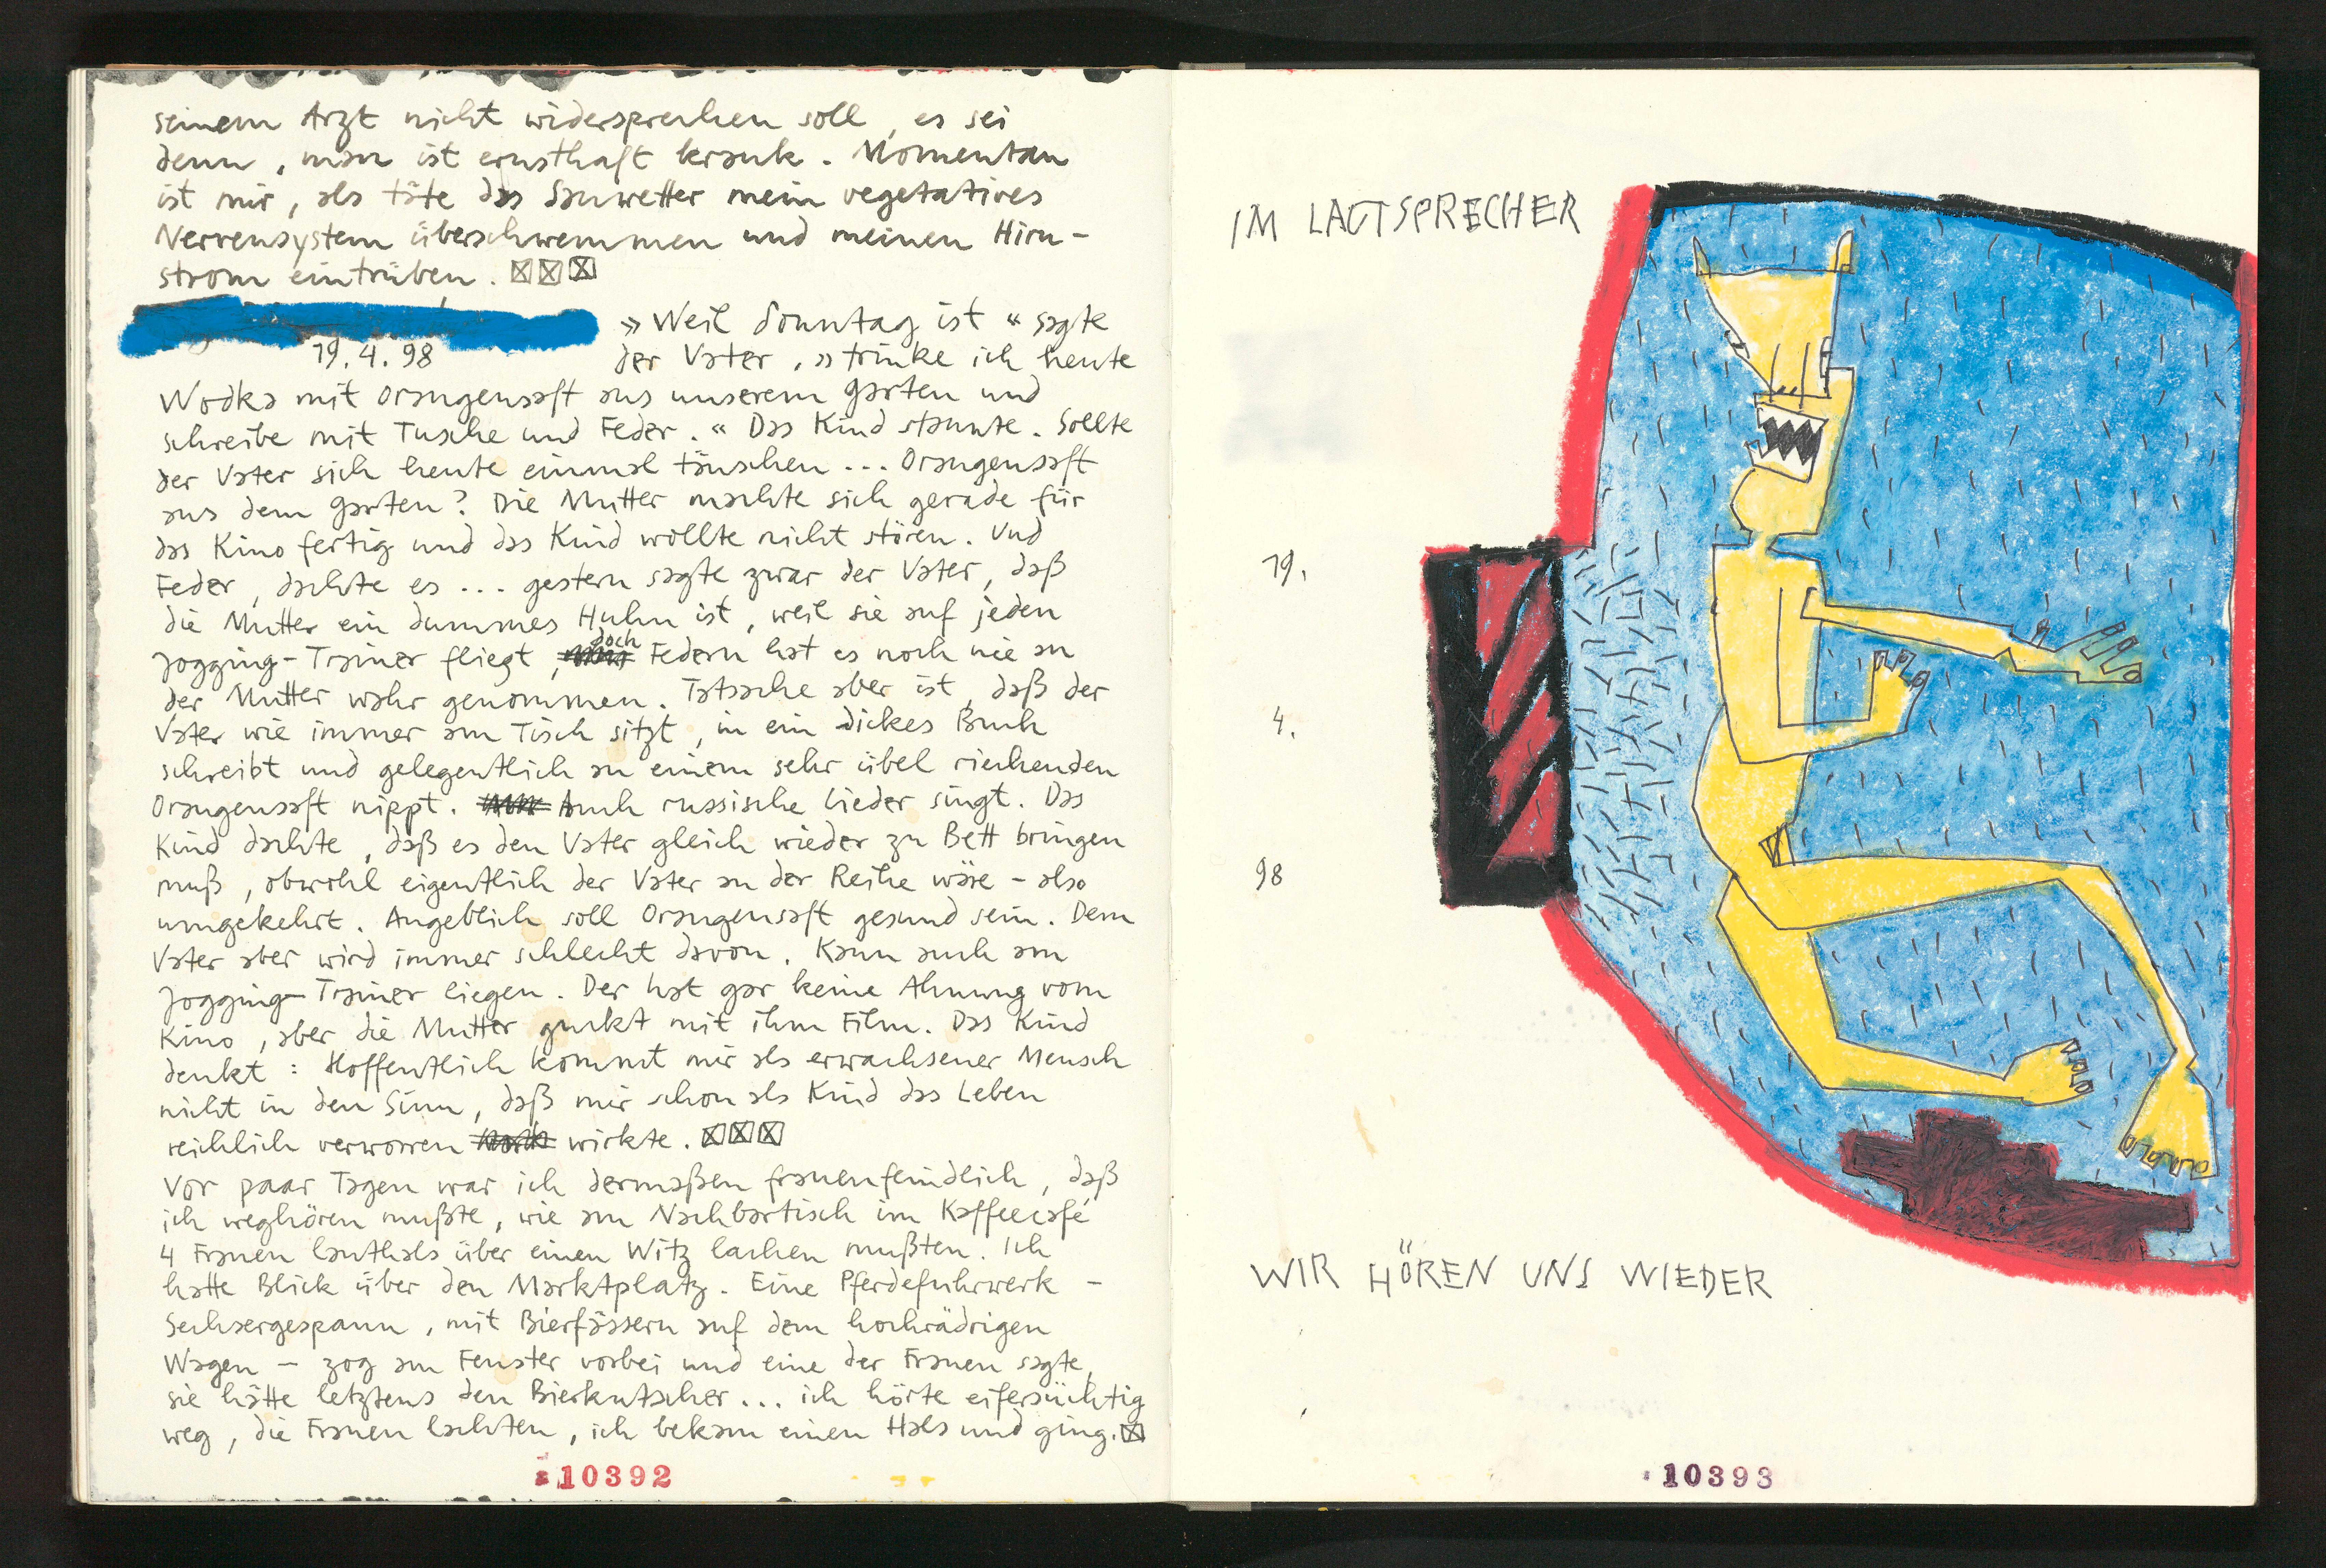 seinem Arzt nicht widersprechen soll, es sei
denn, man ist ernsthaft krank. Momentan
ist mir, als täte das Sauwetter mein vegetatives
Nervensystem überschwemmen und meinen Hirn-
strom eintrüben. ☒☒☒
»Weil Sonntag ist« sagte
19.4.98
der Vater, »trinke ich heute
Wodka mit Orangensaft aus unserem Garten und
schreibe mit Tusche und Feder.« Das Kind staunte. Sollte
der Vater sich heute einmal täuschen... Orangensaft
aus dem Garten? Die Mutter machte sich gerade für
das Kino fertig und das Kind wollte nicht stören. Und
Feder, dachte es... gestern sagte zwar der Vater, daß
die Mutter ein dummes Huhn ist, weil sie auf jeden
Jogging-Trainer fliegt, doch Federn hat es noch nie an
der Mutter wahr genommen. Tatsache aber ist, daß der
Vater wie immer am Tisch sitzt, in ein dickes Buch
schreibt und gelegentlich an einem sehr übel riechenden
Orangensaft nippt. Auch russische Lieder singt. Das
Kind dachte, daß es den Vater gleich wieder zu Bett bringen
muß, obwohl eigentlich der Vater an der Reihe wäre - also
umgekehrt. Angeblich soll Orangensaft gesund sein. Dem
Vater aber wird immer schlecht davon. Kann auch am
Jogging-Trainer liegen. Der hat gar keine Ahnung vom
Kino, aber die Mutter guckt mit ihm Film. Das Kind
denkt: Hoffentlich kommt mir als erwachsener Mensch
nicht in den Sinn, daß mir schon als Kind das Leben
reichlich verworren wirkte. ☒☒☒
Vor paar Tagen war ich dermaßen frauenfeindlich, daß
ich weghören mußte, wie am Nachbartisch im Kaffeecafé
4 Frauen lauthals über einen Witz lachen mußten. Ich
hatte Blick über den Marktplatz. Eine Pferdefuhrwerk -
Sechsergespann, mit Bierfässern auf dem hochrädrigen
Wagen - zog am Fenster vorbei und eine der Frauen sagte,
sie hätte letztens den Bierkutscher... ich hörte eifersüchtig
weg, die Frauen lachten, ich bekam einen Hals und ging. ☒
10392
IM LAUTSPRECHER
19.
4.
98
WIR HÖREN UNS WIEDER
10393